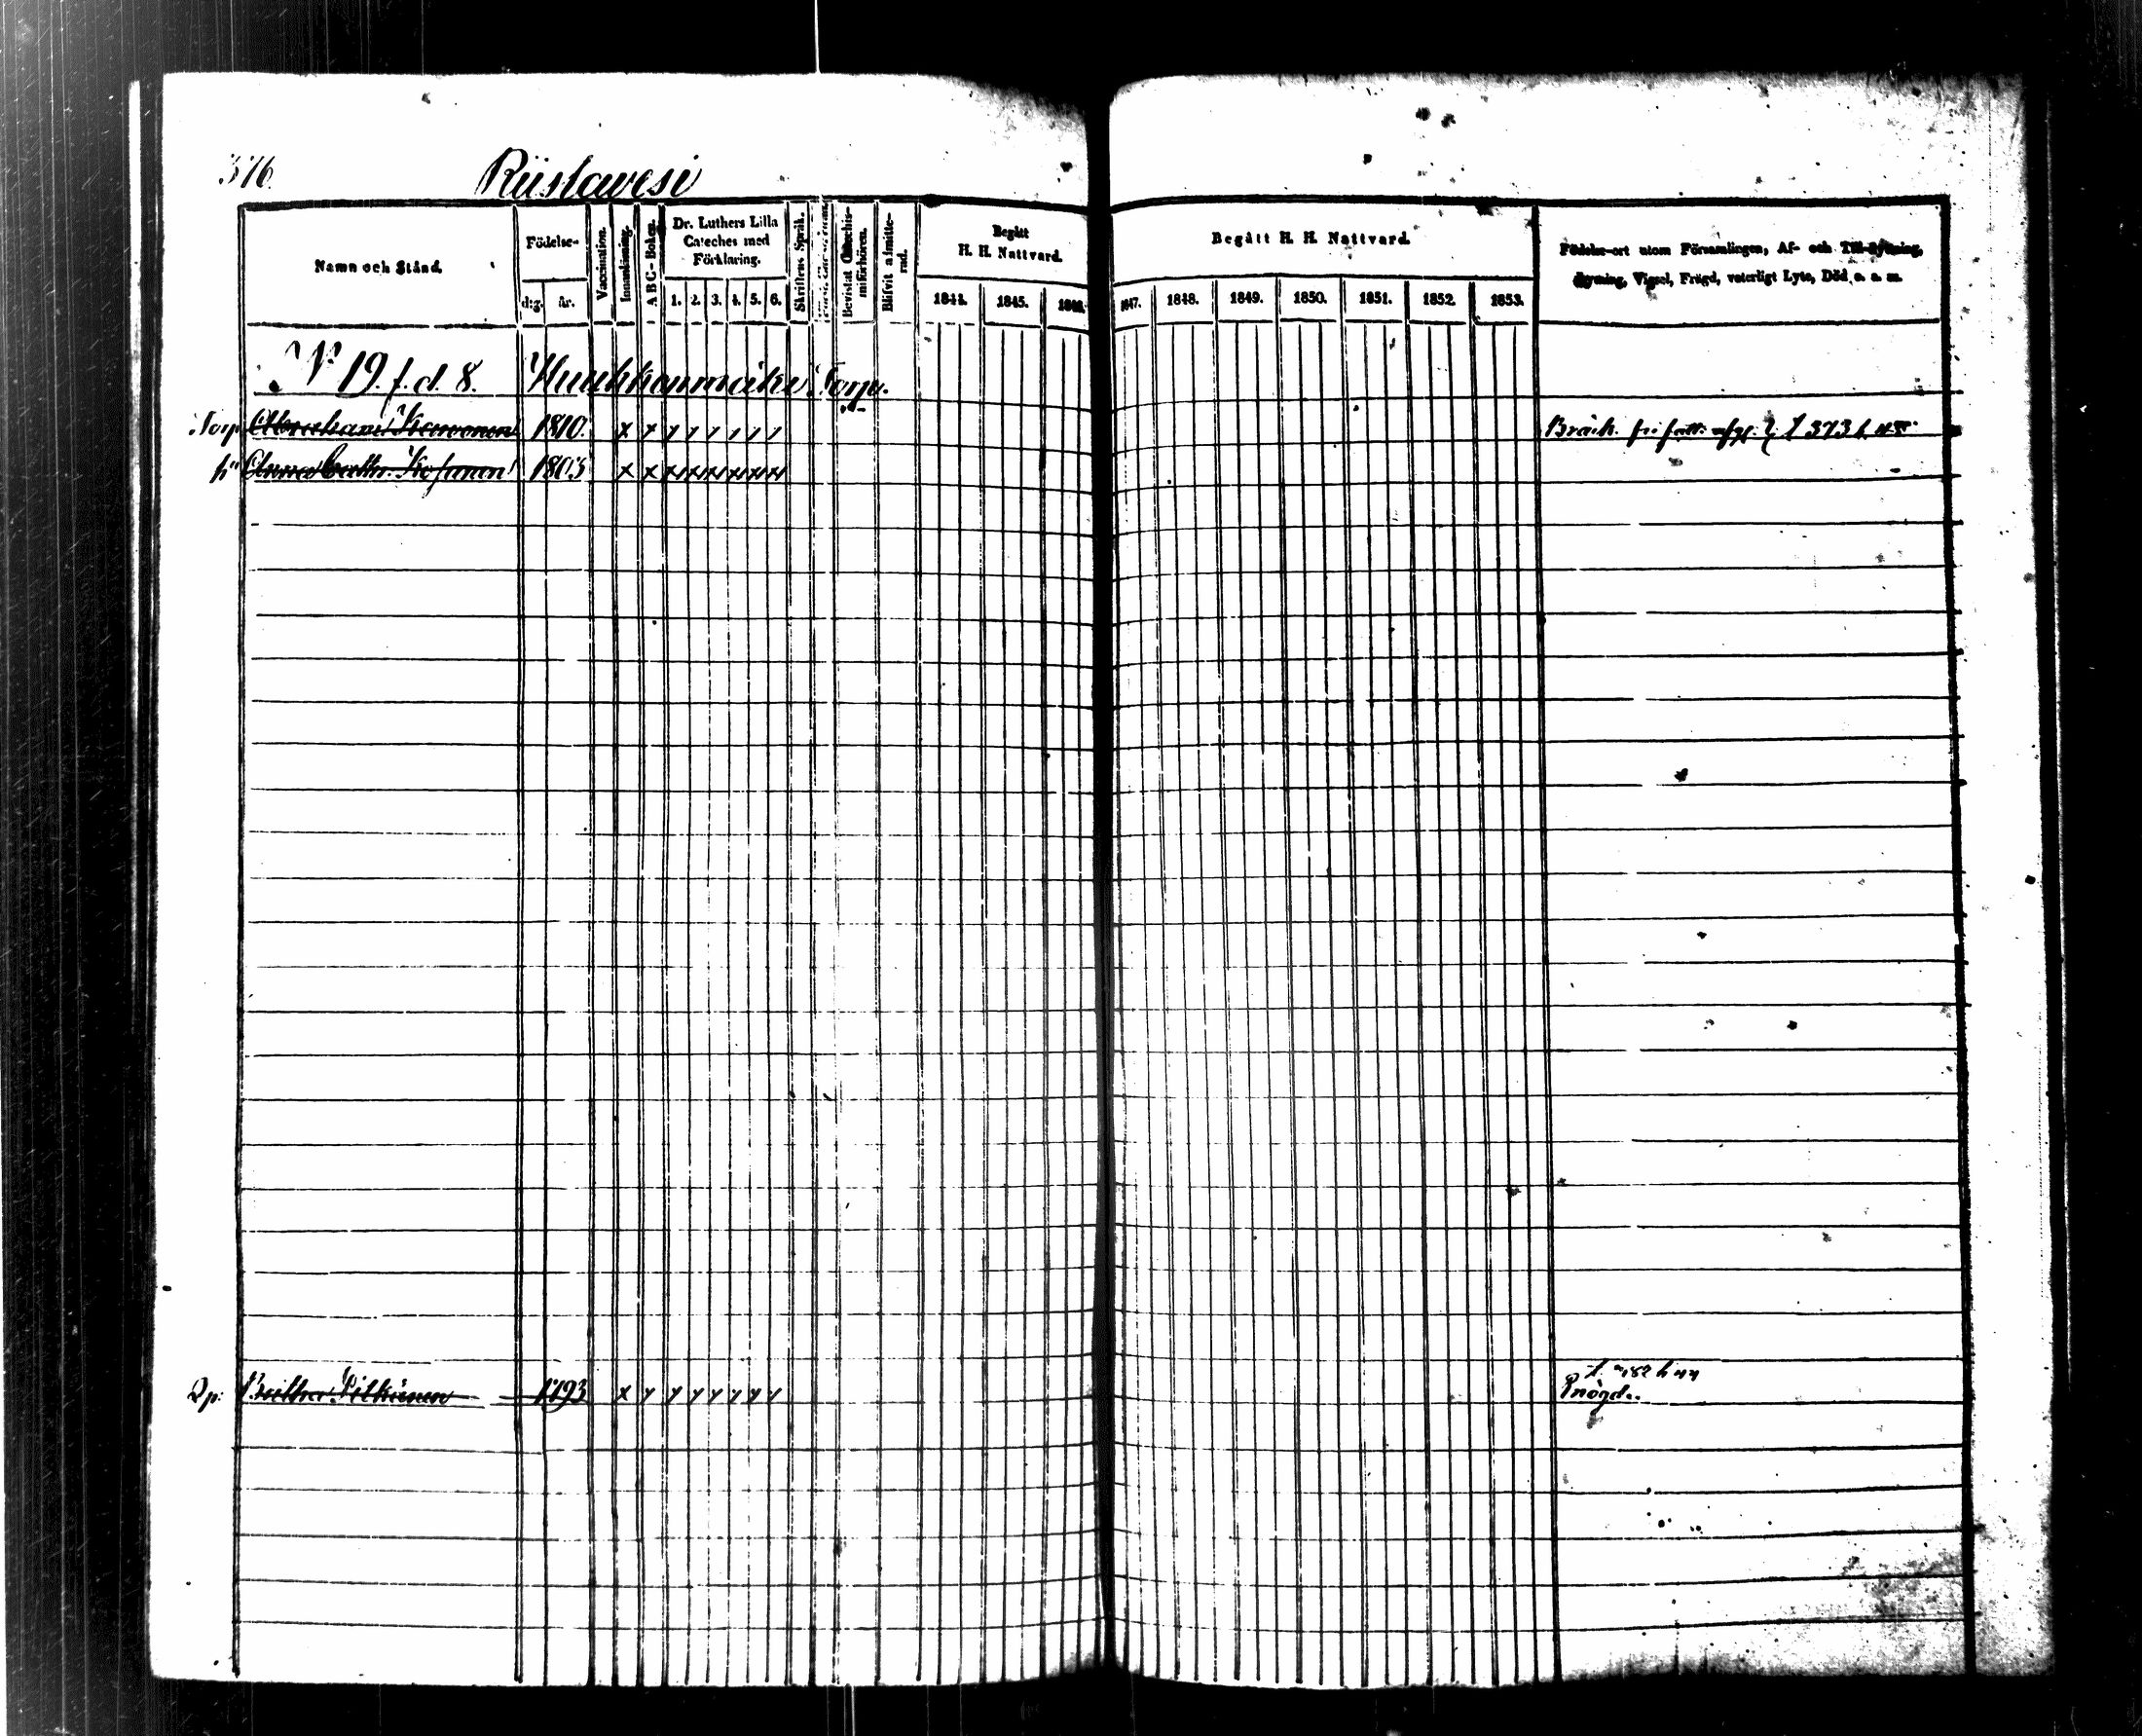 376
Riistavesi
Namn och Stånd.
Födelse-
dag. år.
Vaccination.
Innanläsning.
A B C-Boken.
Dr. Luthers Lilla
Cateches med
Förklaring.
1. 2. 3. 4. 5. 6.
Skriftens Språk.
Bevistat Catechis-
miförhören.
Blifvit admitte-
rad.
Begått
H. H. Nattvard.
1844. 1845. 1846.
Begått H. H. Nattvard.
1847. 1848. 1849. 1850. 1851. 1852. 1853.
Födelse-ort utom Församlingen, Af- och Till-flyttning,
Vigsel, Frägd, vaterligt Lyte, Död o. s. m.
No 19. f. d. 8. Huuhkanmäki Torp.
Torp. Abraham Karvonen 1810. x x / / / / / / Bräck. 373
h Anna Cath. 1803 x x x x x x x x
Britha Pitkänen 1793 x y y y y y y /